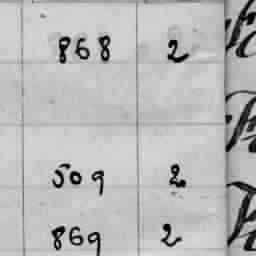 868 2
509 2
869 2